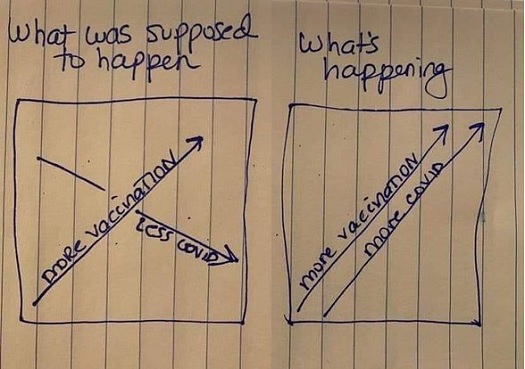 What was supposed
to happen
more vaccination
less covid
What's
happening
more vaccination
more covid